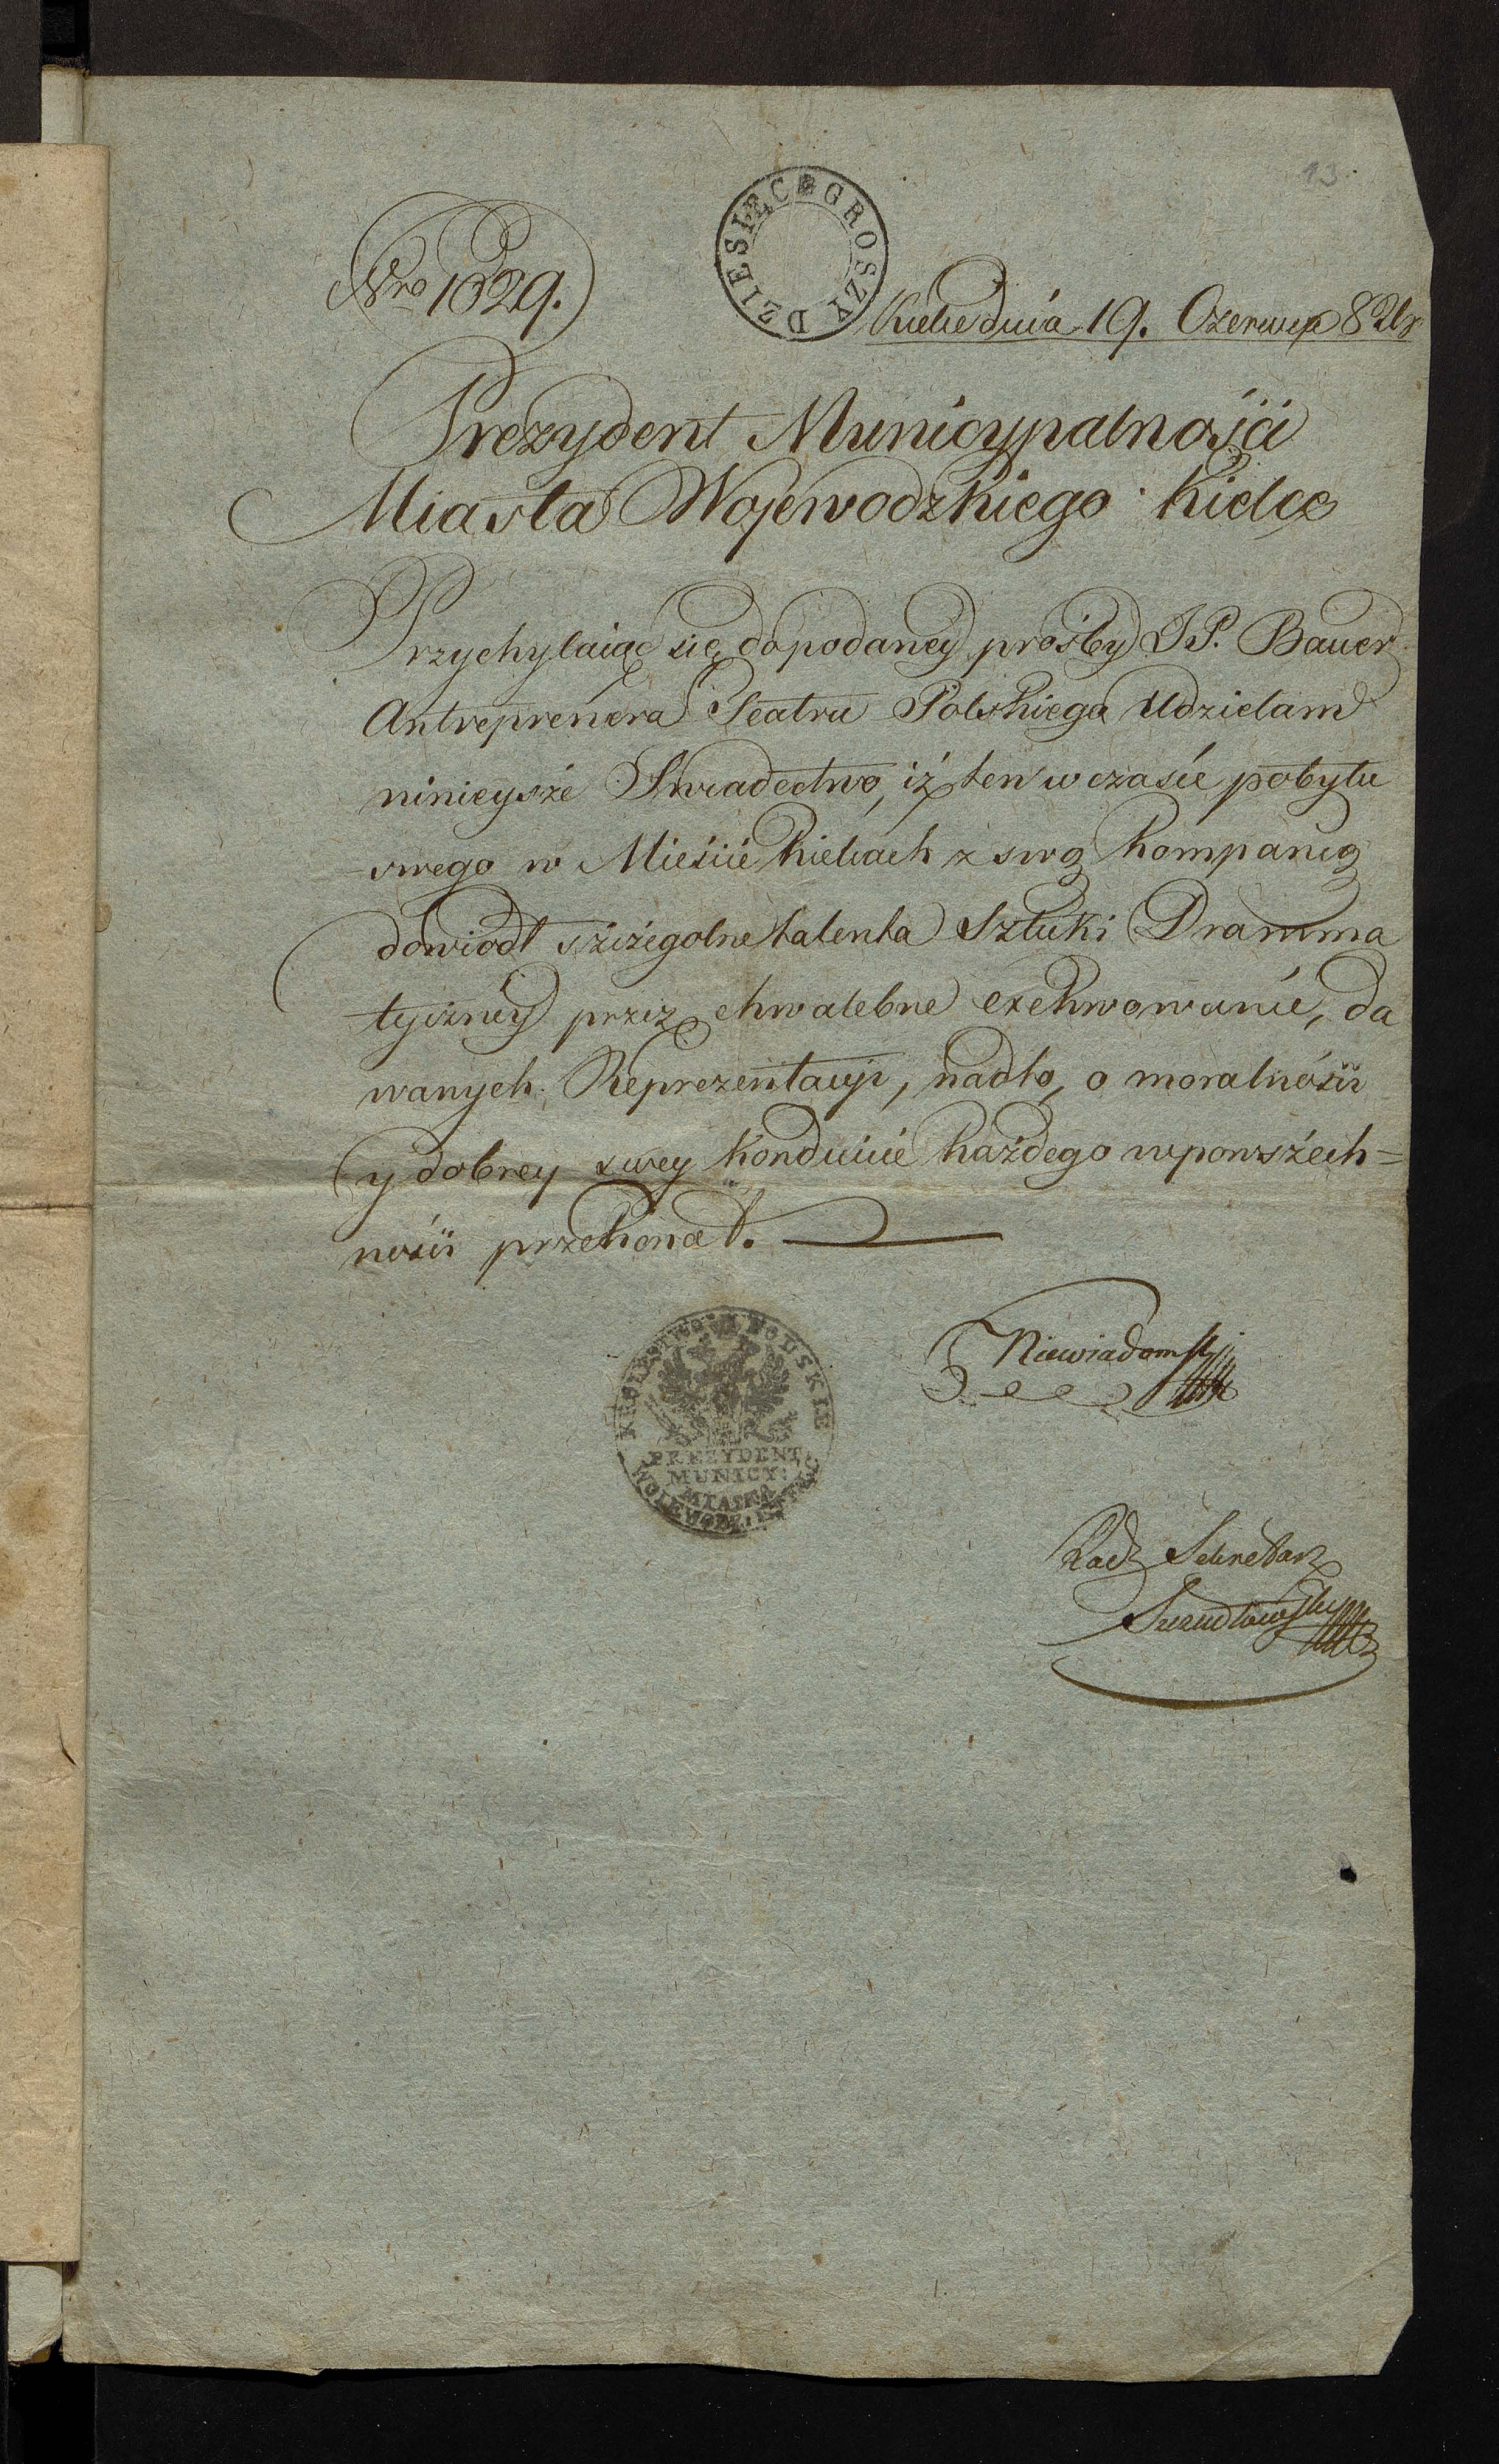 13.
DZIESIĘC GROSZY
Nro 1629.
Kielce dnia 19. Czerwca 82
Prezydent Municypalności
Miasta Wojewodzkiego Kielce
Przychylaiąc się do podaney prośby JP. Bauer
Antreprenera Teatru Polskiego Udzielam
ninieysze Swiadectwo, iż ten w czasie pobytu
swego w Mieście Kielcach z swą Kompanią
dowiodł szczegolne talenta Sztuki Dramma
tyczney przez chwalebne exekwowanie, da
wanych Reprezentacyi, nadto, o moralności
y dobrey swey Konduicie każdego w powszech=
ności przekonał.
Niewiadomski
KROLESTWO POLSKIE
PREZYDENT
MUNICY:
MIASTA
WOIEWODZ:
Radz Sekretarz